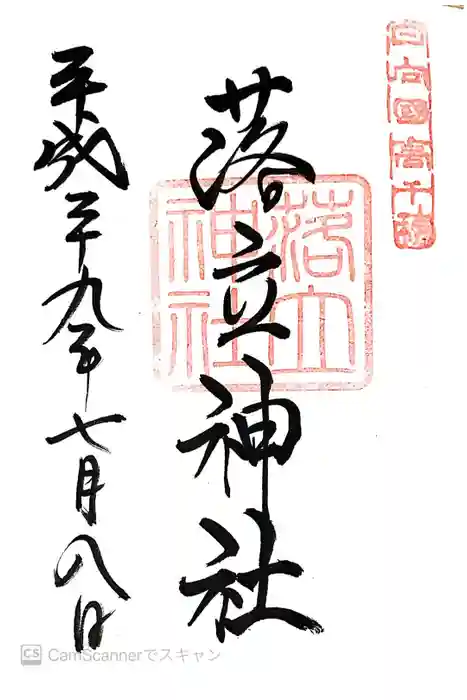 日向國高千穂
落立神社
落立
神社
平成二十九年七月八日
CS CamScannerでスキャン